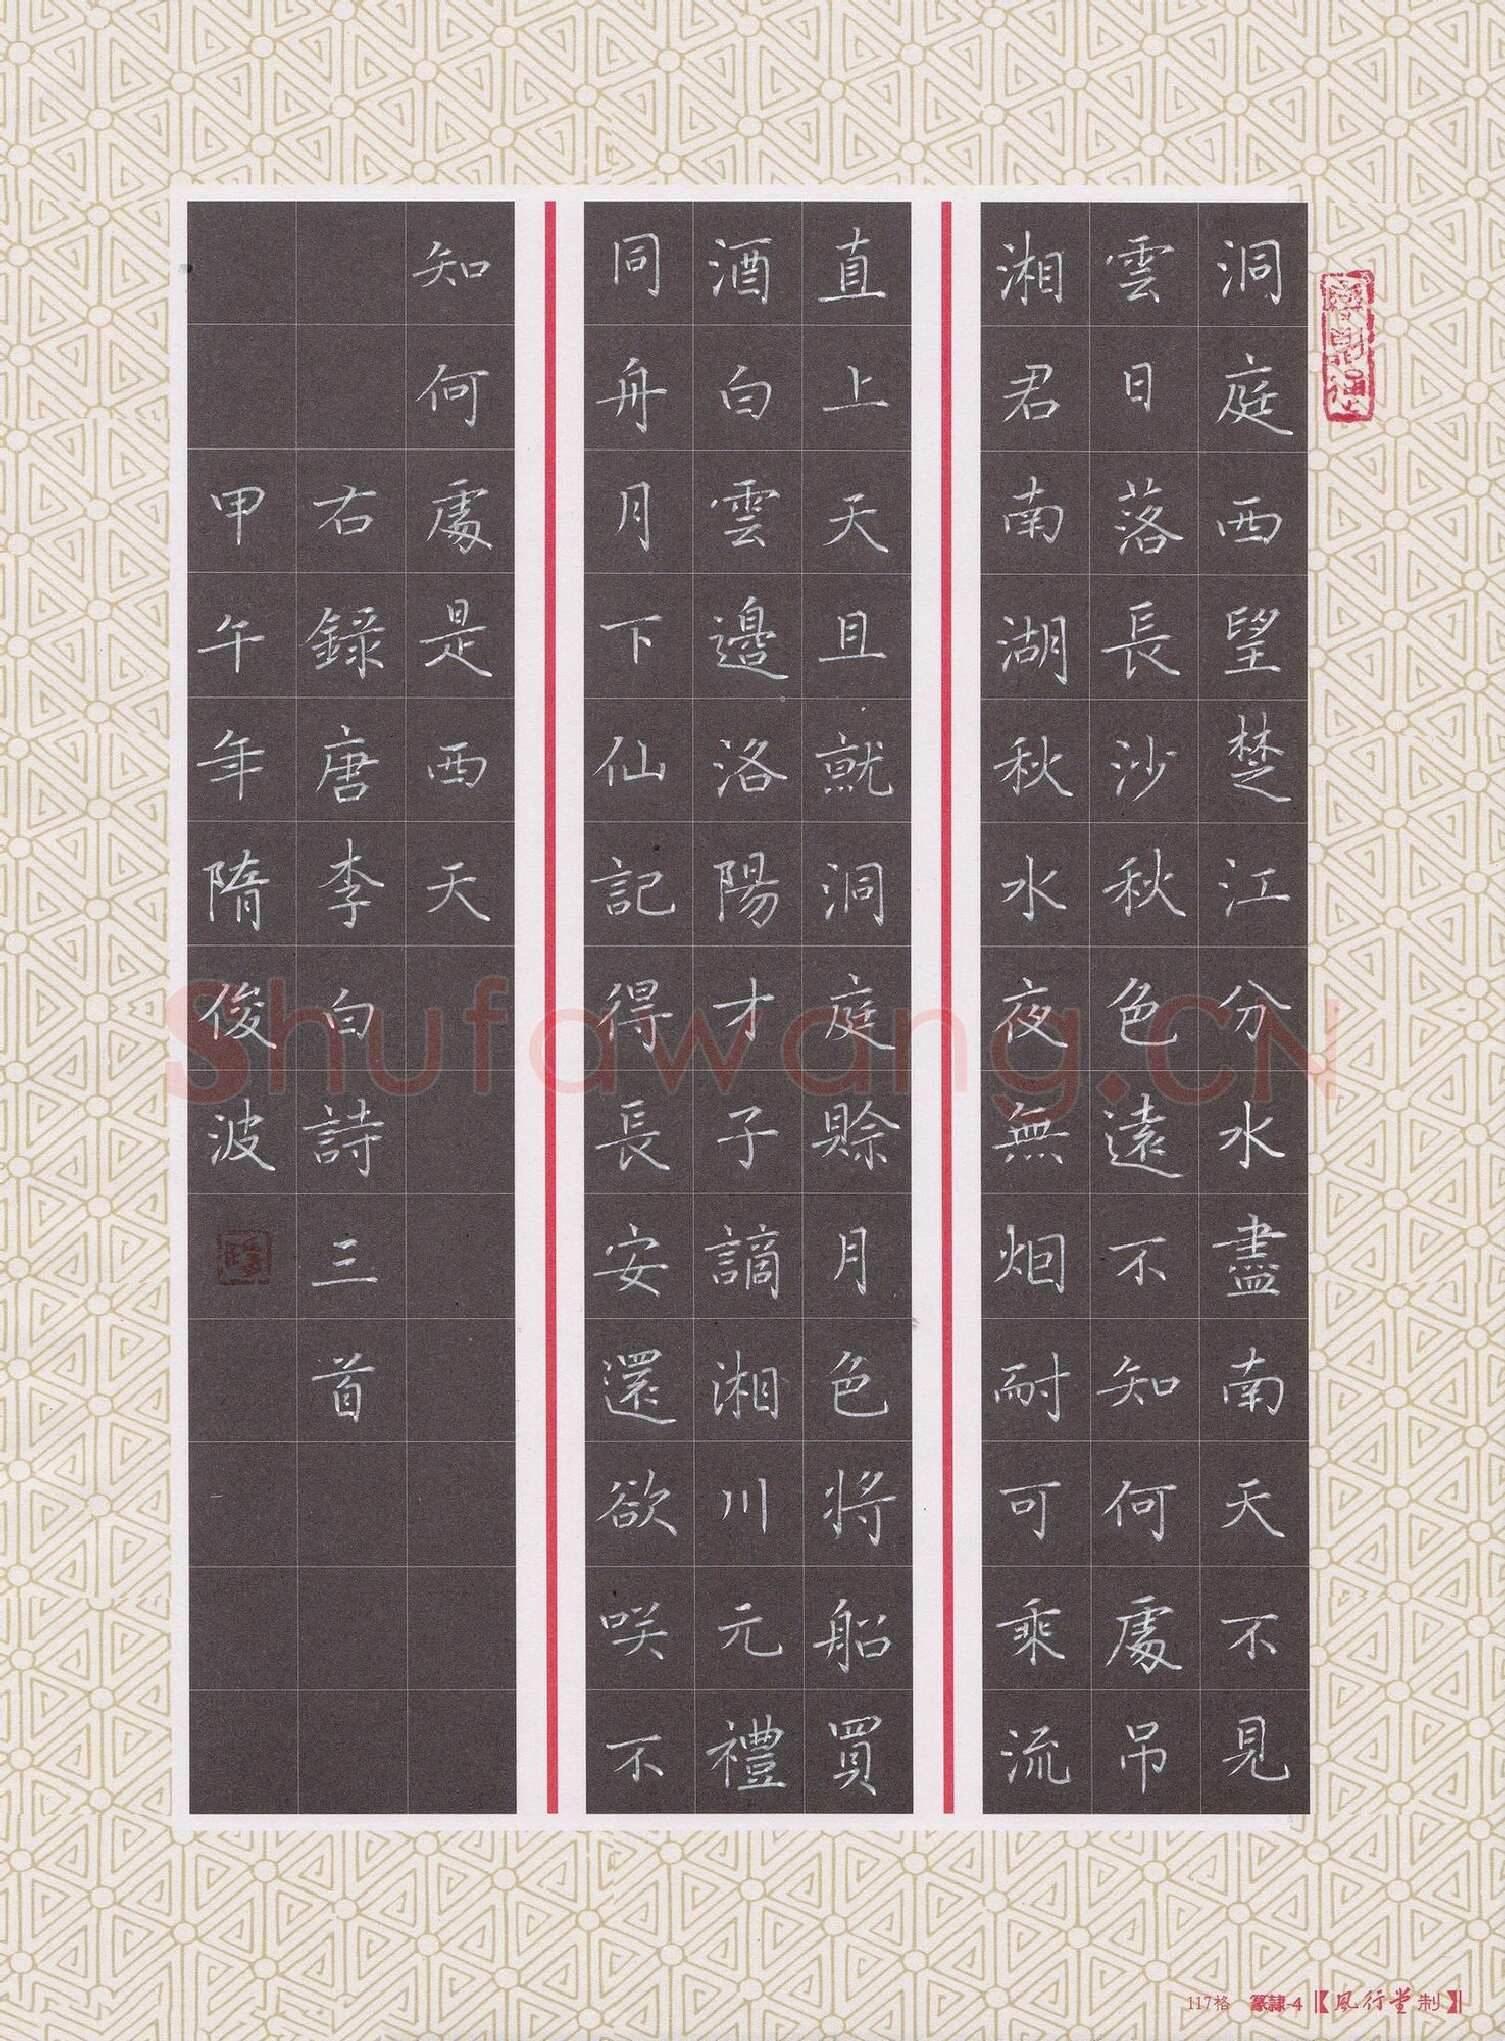 洞庭西望楚江分水盡南天不見
雲日落長沙秋色遠不知何處吊
湘君南湖秋水夜無烟耐可乘流
直上天且就洞庭賒月色将船買
酒白雲邊洛陽才子謫湘川元禮
同舟月下仙記得長安還欲咲不
知何處是西天
右錄唐李白詩三首
甲午年隋俊波
Shufawang.CN
117格 篆隸-4 【風行堂制】